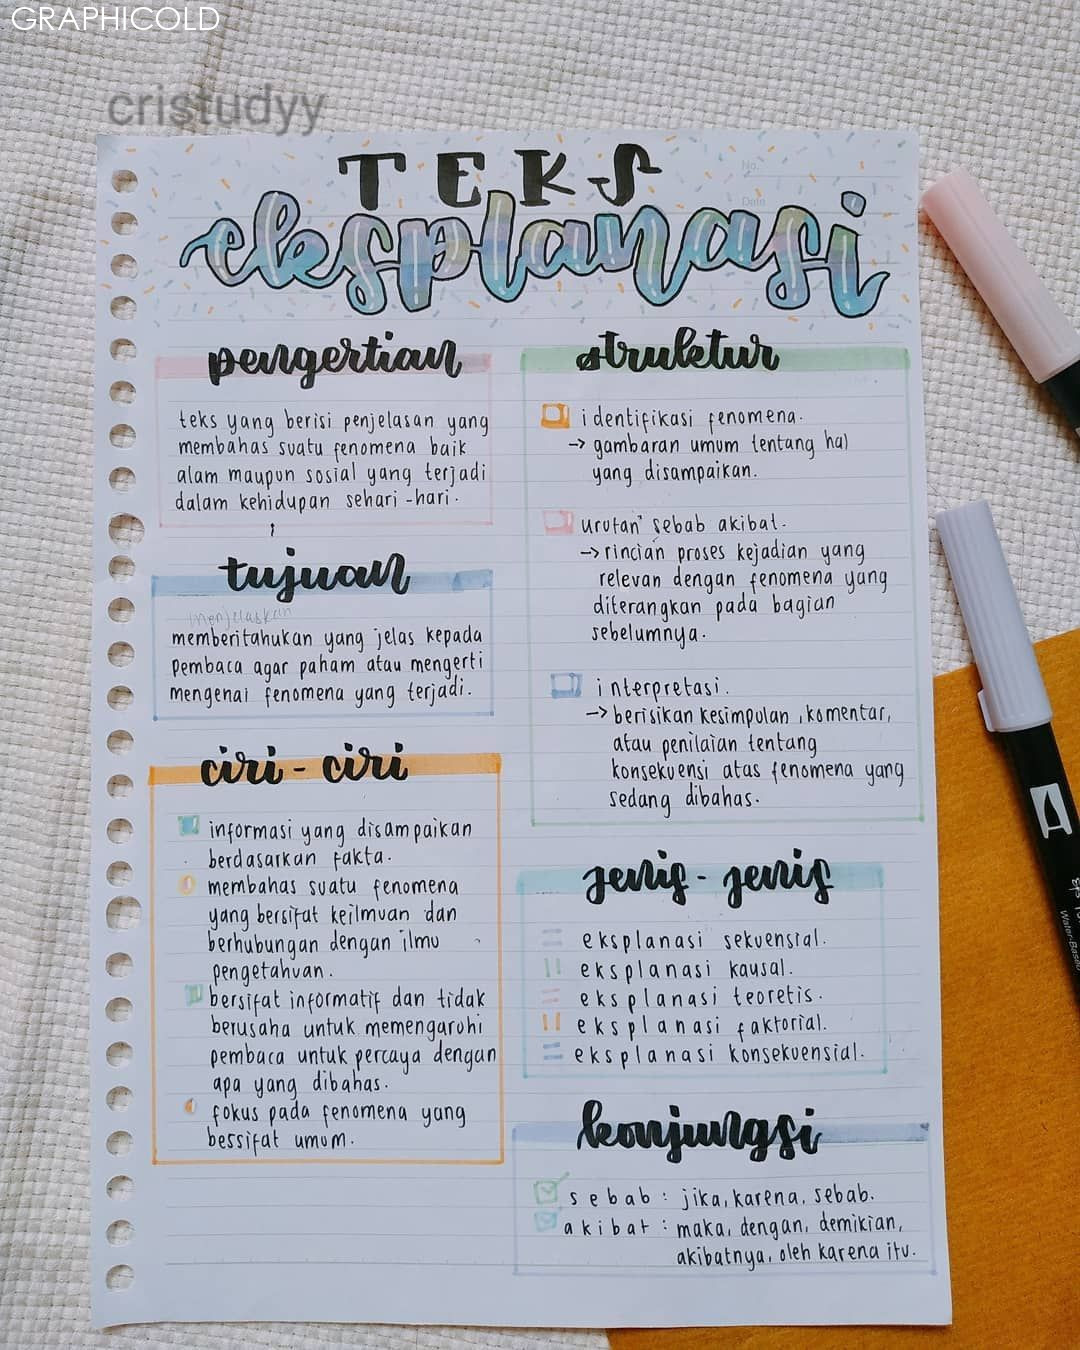 GRAPHICOLD
cristudyy
No.
Date
TEKS
eksplanasi
pengertian
teks yang berisi penjelasan yang
membahas suatu fenomena baik
alam maupun sosial yang terjadi
dalam kehidupan sehari-hari.
tujuan
menjelaskan
memberitahukan yang jelas kepada
pembaca agar paham atau mengerti
mengenai fenomena yang terjadi.
ciri-ciri
informasi yang disampaikan
berdasarkan fakta.
membahas suatu fenomena
yang bersifat keilmuan dan
berhubungan dengan ilmu
pengetahuan.
bersifat informatif dan tidak
berusaha untuk memengaruhi
pembaca untuk percaya dengan
apa yang dibahas.
fokus pada fenomena yang
bersifat umum.
struktur
identifikasi fenomena.
→ gambaran umum tentang hal
yang disampaikan.
urutan" sebab akibat.
→ rincian proses kejadian yang
relevan dengan fenomena yang
diterangkan pada bagian
sebelumnya.
interpretasi.
→ berisikan kesimpulan, komentar,
atau penilaian tentang
konsekuensi atas fenomena yang
sedang dibahas.
jenis-jenis
eksplanasi sekuensial.
eksplanasi kausal.
eksplanasi teoretis.
eksplanasi faktorial.
eksplanasi konsekuensial.
konjungsi
sebab : jika, karena, sebab.
akibat : maka, dengan, demikian,
akibatnya, oleh karena itu.
Water-Based